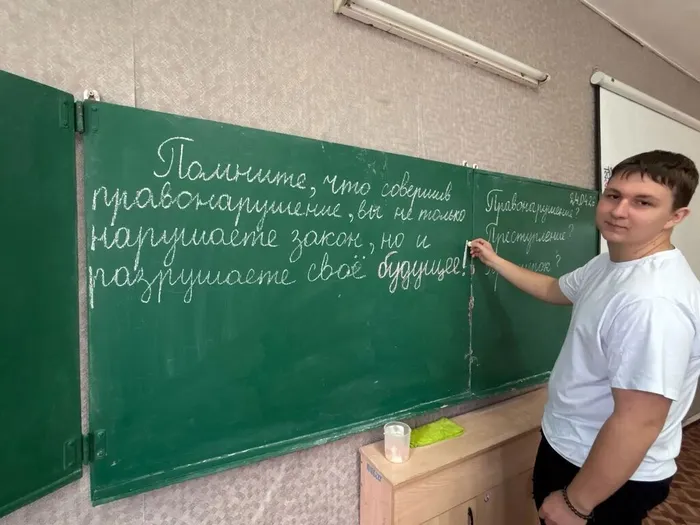 Помните, что совершив
правонарушение, вы не только
нарушаете закон, но и
разрушаете своё будущее!
Правонарушение?
Преступление?